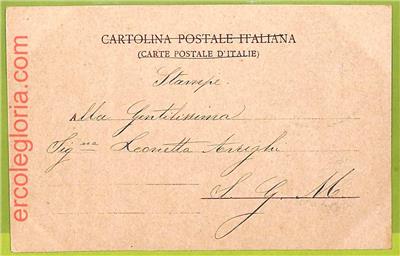 CARTOLINA POSTALE ITALIANA
(CARTE POSTALE D'ITALIE)
Stampe.
Alla Gentilissima
Sig^na Leonetta Arrighi
S. G. M.
ercolegloria.com